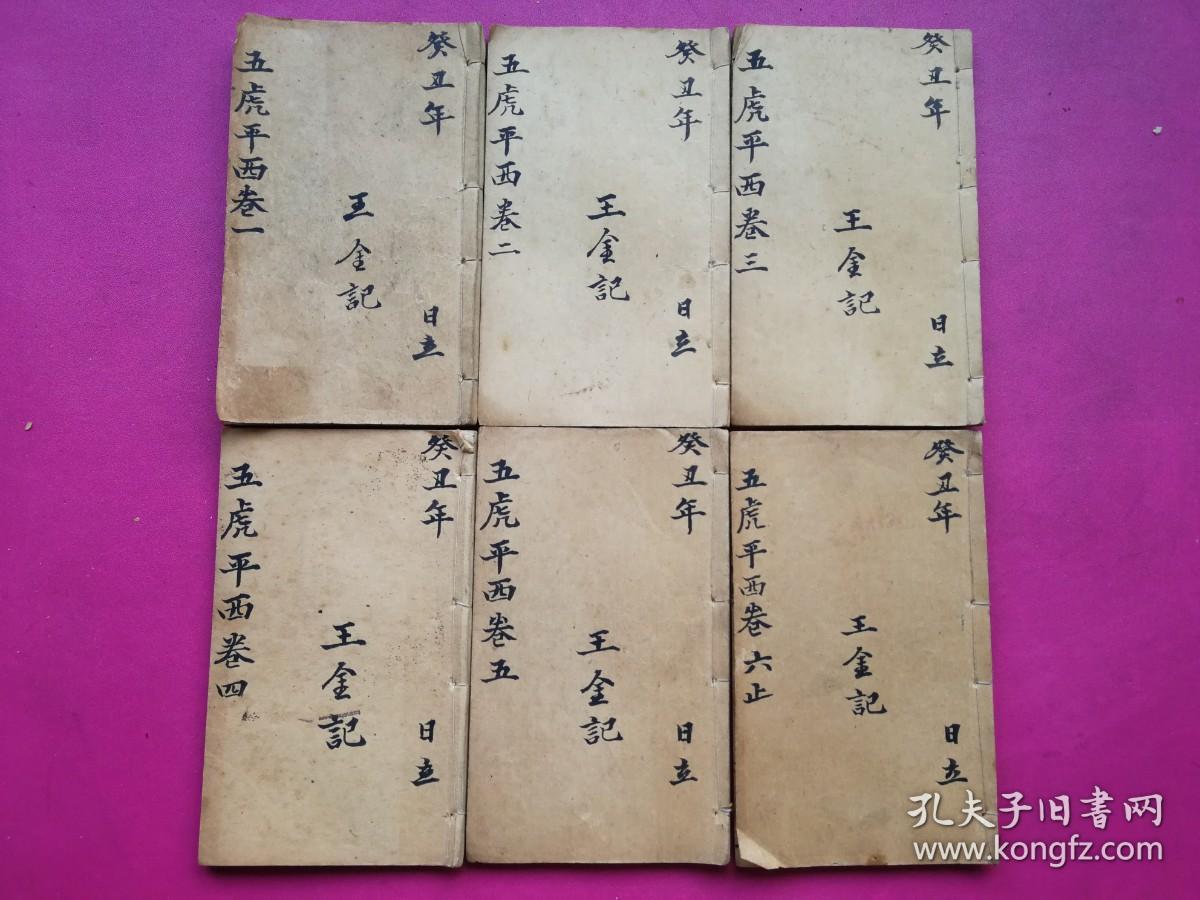 癸丑年
日立
王金記
五虎平西卷一
癸丑年
日立
王金記
五虎平西卷二
癸丑年
日立
王金記
五虎平西卷三
癸丑年
日立
王金記
五虎平西卷四
癸丑年
日立
王金記
五虎平西卷五
癸丑年
日立
王金記
五虎平西卷六止
孔夫子旧書网
www.kongfz.com